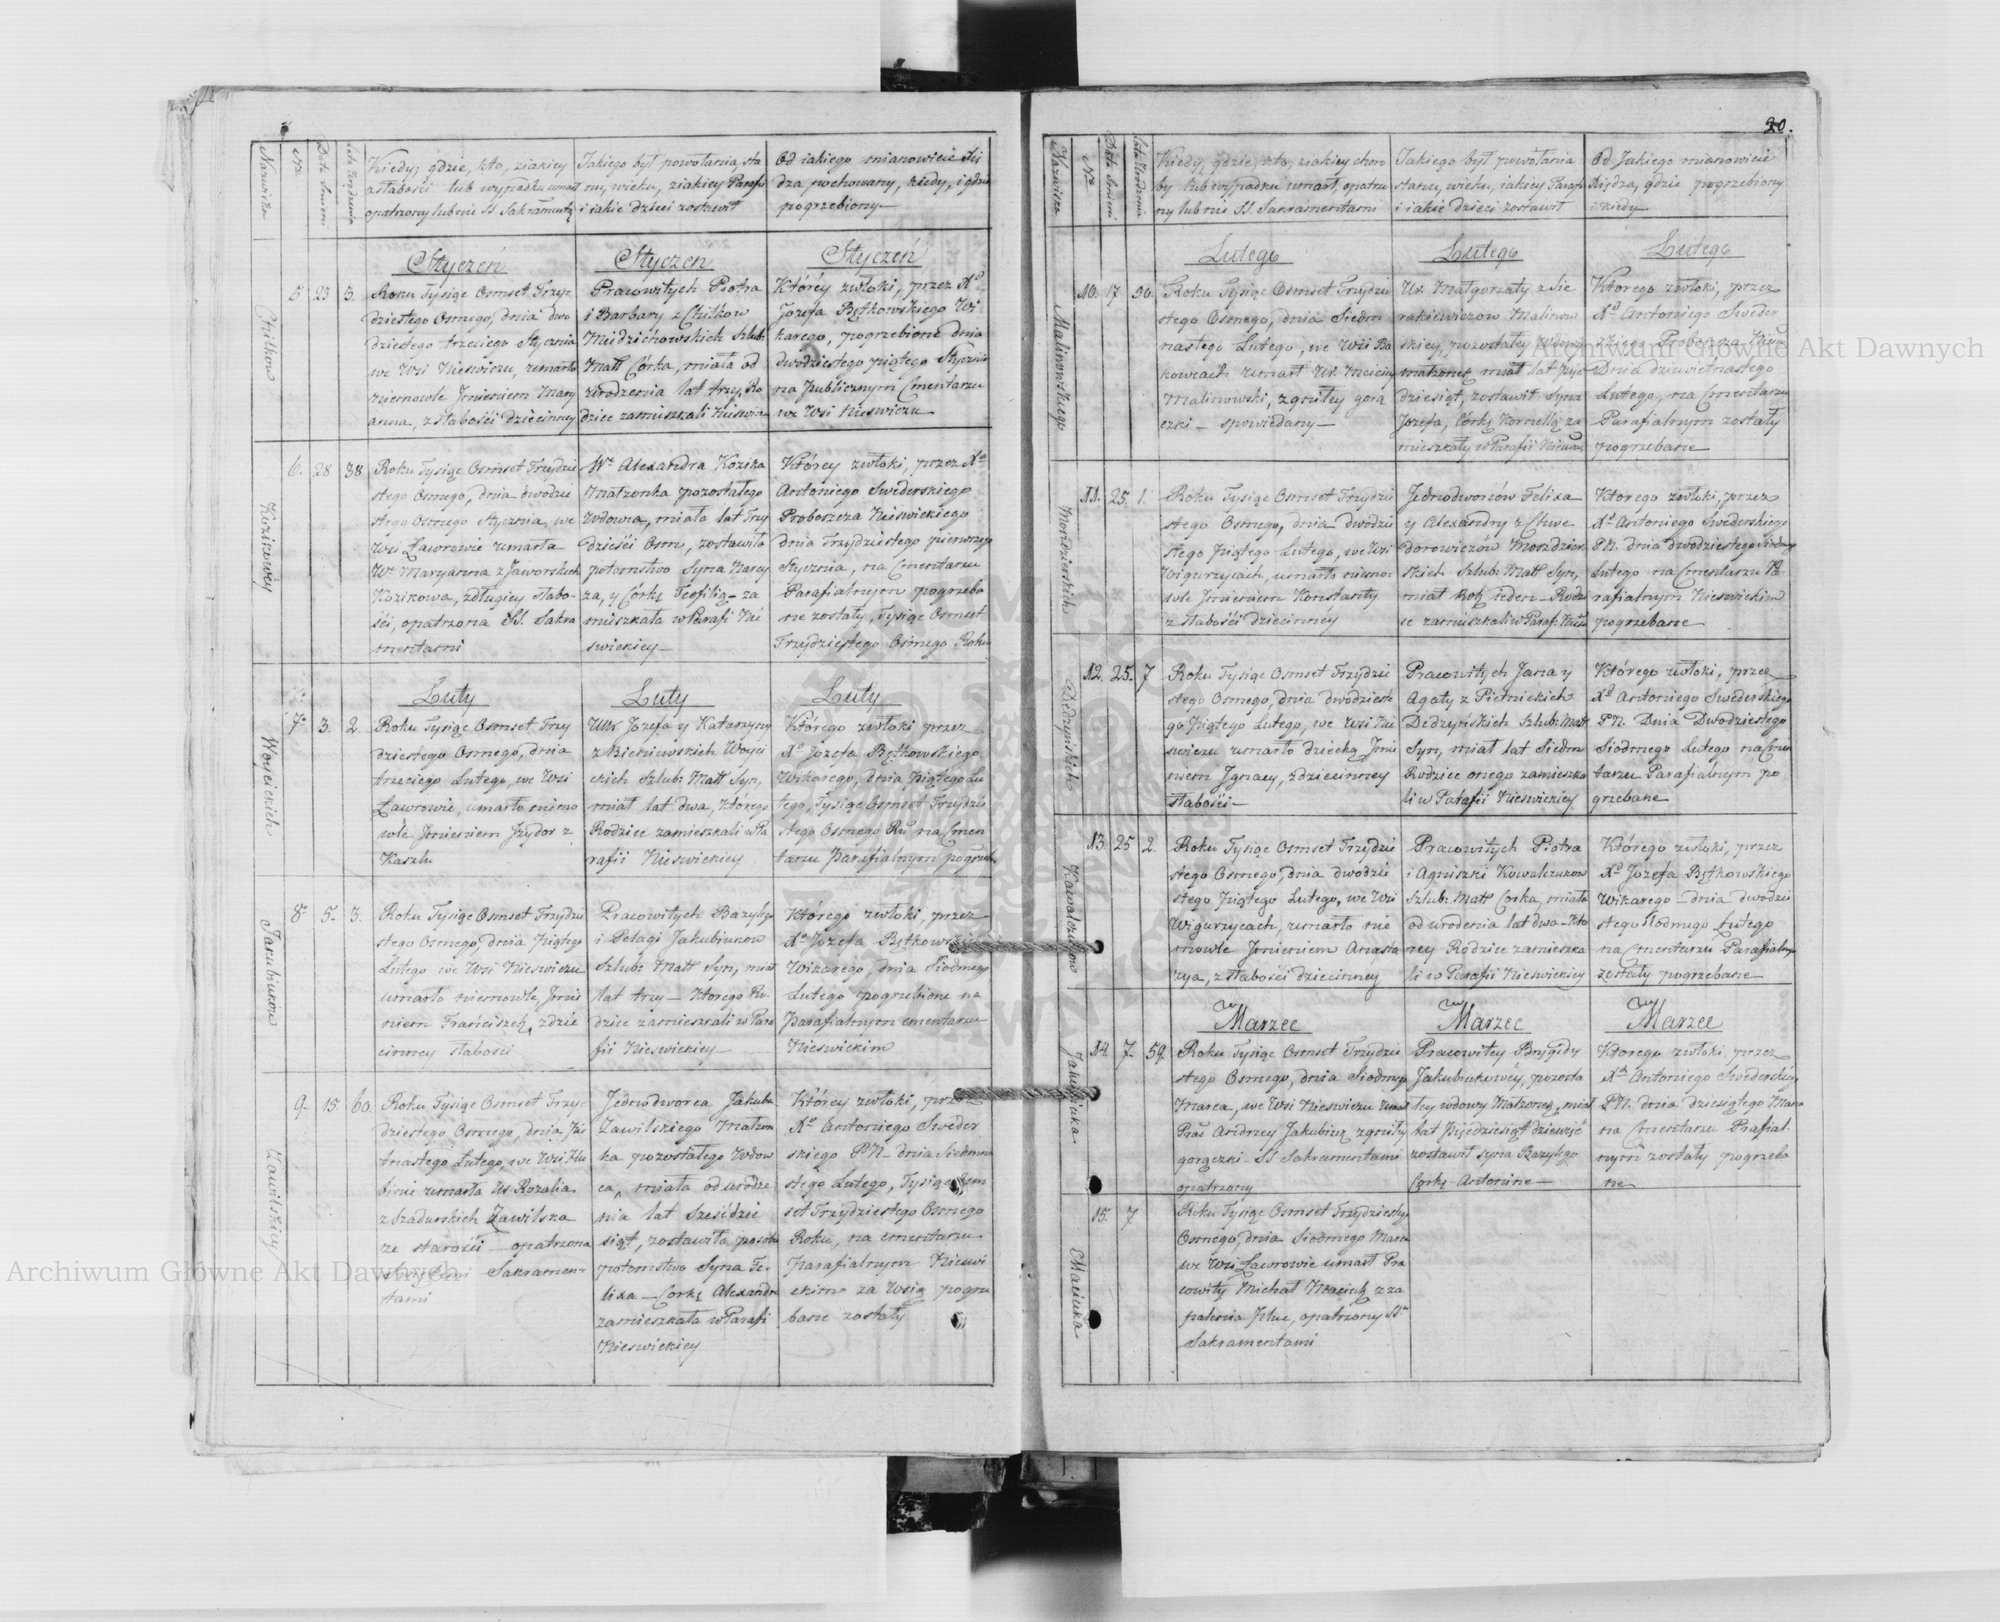 20.
Nazwisko
Nr
Data Smierci
Lata Urodzenia
Kiedy, gdzie, kto, ziakiey
zsłabości lub wypadku umarł
opatrzony lub nie SS. Sakramentą
Jakiego był powołania, sta
nu, wieku, ziakiey Parafii
i iakie dzieci zostawił
Od iakiego mianowicie Xię
dza pochowany, kiedy, i gdzie
pogrzebiony
Styczeń
Styczeń
Styczeń
Chilkow
5. 23 3.
Roku Tysiąc Osmset Trzy-
dziestego Osmego, dnia dwó
dziestego trzeciego Stycznia
we Wsi Nieswiczu, umarło
niemowle Jmieniem Mary
anna, z słabości dziecinney
Pracowitych Piotra
i Barbary z Chilkow
Szlub:
Matt Córka, miała od
urodzenia lat trzy, Ro
dzice zamieszkali
Którey zwłoki, przez Xa
Józefa Bętkowskiego Wi
karego, pogrzebione dnia
dwódziestego piątego Stycznia
na Publicznym Cmentarzu
we Wsi Nieswiczu
Kozikowey
6. 28 38
Roku Tysiąc Osmset Trzydzie
stego Osmego, dnia dwódzie
stego Osmego Stycznia, we
Wsi Ławrowie umarła
Wa Maryanna z Jaworskich
Kozikowa, zdługiey słabo-
ści, opatrzona SS. Sakra
mentami
Wo Alexandra Kozika
Małżonka pozostałego
Wdowca, miała lat Trzy
dzieści Osm, zostawiła
potomstwo Syna Narcy
za, y Córkę Teofilią – za
mieszkała w Parafi Nie
swickiey
Którey zwłoki, przez Xa
Antoniego Swederskiego
Proboszcza Nieswickiego
dnia Trzydziestego pierwszego
Stycznia, na Cmentarzu
Parafialnym pogrzeba
ne zostały, Tysiąc Osmset
Trzydziestego Osmego Roku
Luty
Luty
Luty
Woycickich
7. 3. 2.
Roku Tysiąc Osmset Trzy
dziestego Osmego, dnia
trzeciego Lutego, we Wsi
Ławrowie, umarło niemo
wle Jmieniem Jzydor z
Kaszlu
Józefa y Katarzyny
z Bieniewskich Woyci
ckich Szlub: Matt Syn,
miał lat dwa, którego
Rodzice zamieszkali w Pa
rafii Nieswickiey
Którego zwłoki przez
Xa Józefa Bętkowskiego
Wikarego, dnia piątego Lu
tego, Tysiąc Osmset Trzydzie
stego Osmego Ru na Cmen
tarzu Parafialnym pogrzeb
Jakubiukow
8. 5. 3.
Roku Tysiąc Osmset Trzydzie
stego Osmego, dnia piątego
Lutego we Wsi Nieswiczu
umarło niemowle, Jmie
niem Franciszek, zdzie
cinney słabości
Pracowitych Bazylego
i Pelagi Jakubiukow
Szlub: Matt Syn, miał
lat trzy – którego Ro-
dzice zamieszkali w Para
fii Nieswickiey
Którego zwłoki, przez
Xa Józefa Bętkowskiego
Wikarego, dnia Siodmego
Lutego pogrzebione na
Parafialnym cmentarzu
Nieswickim
Zawilskiey
9. 15. 60.
Roku Tysiąc Osmset Trzy-
dziestego Osmego, dnia Pię
tnastego Lutego, we Wsi
umarła Rozalia
Zawilska
ze starości – opatrzona
Sakramen-
tami
Jednodworca Jakuba
Zawilskiego Małżon
ka pozostałego Wdow
ca, miała od urodze
nia lat sześćdzie
siąt, zostawiła
potomstwo Syna Fe-
lixa – Corkę Alexandrę
zamieszkała w Parafi
Nieswickiey
Którey zwłoki, przez
Xa Antoniego Sweder
skiego PN. dnia Siedmna
stego Lutego, Tysiąc Osm
set Trzydziestego Osmego
Roku, na cmentarzu
Parafialnym Nieswi
ckim za Wsią pogrze
bane zostały
Nazwisko
Nr
Data Smierci
Lata Urodzenia
Kiedy, gdzie, kto, ziakiey choro
by lub wypadku umarł, opatrzo
ny lub nie SS. Sakramentami
Jakiego był powołania
stanu, wieku, iakiey Parafi
i iakie dzieci zostawił
Od Jakiego mianowicie
Xiędza, gdzie pogrzebiony
i kiedy
Lutego
Lutego
Lutego
Malinowskiego
10. 17 50.
Roku Tysiąc Osmset Trzydzie
stego Osmego, dnia Siedm
nastego Lutego, we Wsi Ba
kowcach umarł
Malinowski, zgniłey gorą
czki – spowiedany –
Ur. Małgorzaty z Sie
rakiewiczow Malinow
skiey, pozostałey Wdowy
małżonek miał lat pięć
dziesiąt, zostawił Syna
Jozefa, Córkę Kornelią za
mieszkały w Parafii
Ktorego zwłoki, przez
Xa Antoniego Sweder
skiego Proboszcza
Dnia dziewiętnastego
Lutego, na Cmentarzu
Parafialnym zostały
pogrzebane
Mordzierskich
11. 25. 1.
Roku Tysiąc Osmset Trzydzie
stego Osmego, dnia dwódzie
stego piątego Lutego, we Wsi
Wigurzycach, umarło niemo-
wle Jmieniem Konstanty
z słabości dziecinney
Jednodworców Felixa
y Alexandry z Chwe
dorowiczow Mordzier
skich Szlub: Matt Syn,
miał Rok ieden – Rodzi
ce zamieszkali w Paraf:
Ktorego zwłoki, przez
Xa Antoniego Swederskiego
PN. dnia dwódziestego Siodmego
Lutego na Cmentarzu Pa-
rafialnym Nieswickim
pogrzebane
Dedzyńskich
12. 25. 7
Roku Tysiąc Osmset Trzydzie
stego Osmego, dnia dwódzieste
go piątego Lutego, we Wsi Nie
swiczu umarło dziecko Jmie
niem Jgnacy, z dziecinney
słabości –
Pracowitych Jana y
Agaty z Pietnickich
Dedzyńskich Szlub: Matt
Syn, miał lat Siedm
Rodzice onego zamieszka
li w Parafii Nieswickiey
Którego zwłoki, przez
Xa Antoniego Swederskiego
PN. Dnia Dwódziestego
Siodmego Lutego na Cmen
tarzu Parafialnym po
grzebane
Kowalczukow
13. 25 2.
Roku Tysiąc Osmset Trzydzie
stego Osmego, dnia dwódzie
stego piątego Lutego, we Wsi
Wigurzycach, umarło nie
mowle Jmieniem Anasta
zya, z słabości dziecinney
Pracowitych Piotra
i Agniszki Kowalczukow
Szlub: Matt Corka, miała
od urodenia lat dwa – Kto
rey Rodzice zamieszka
li w Parafii Nieswickiey
Którego zwłoki, przez
Xa Józefa Bętkowskiego
Wikarego – dnia dwódzie
stego Siodmego Lutego
na Cmentarzu Parafialny
zostały pogrzebane
Marzec
Marzec
Marzec
Jakubiuka
14. 7. 59.
Roku Tysiąc Osmset Trzydzie
stego Osmego, dnia Siodmego
Marca, we Wsi Nieswiczu umar
Prac Andrzey Jakubiuk zgniłey
gorączki – SS Sakramentami
opatrzony
Pracowitey Brygidy
Jakubiukowey, pozosta
łey wdowy Małżonek, miał
lat Pięćdziesiąt dziewięć
zostawił syna Bazylego
Corkę – Antonine –
Ktorego zwłoki, przez
Xa Antoniego Swederskiego
PN. dnia dziesiątego Marca
na Cmentarzu Prafial-
nym zostały pogrzeba
ne
Maciuka
15. 7
Roku Tysiąc Osmset Trzydziestego
Osmego, dnia Siodmego Marca
we Wsi Ławrowie umarł Pra
cowity Michał Maciuk z za
palenia Płuc, opatrzony SS.
Sakramentami
Archiwum Główne Akt Dawnych
Archiwum Główne Akt Dawnych